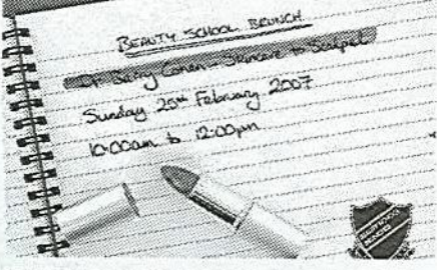 BEAUTY SCHOOL BRUNCH
Dr Barry Cohen - Skincare to Scalpel
Sunday 25th February 2007
10:00am to 12:00pm
BEAUTY SCHOOL